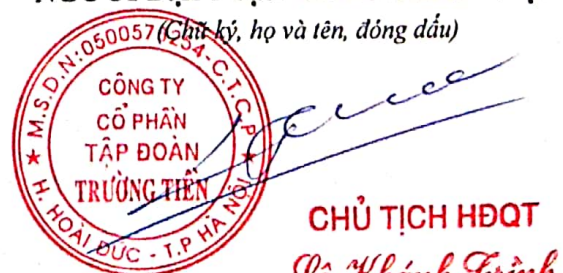 (Chữ ký, họ và tên, đóng dấu)
M.S.D.N:0500571254-C.T.C.P
CÔNG TY
CỔ PHẦN
TẬP ĐOÀN
TRƯỜNG TIẾN
H. HOÀI ĐỨC - T.P HÀ NỘI
CHỦ TỊCH HĐQT